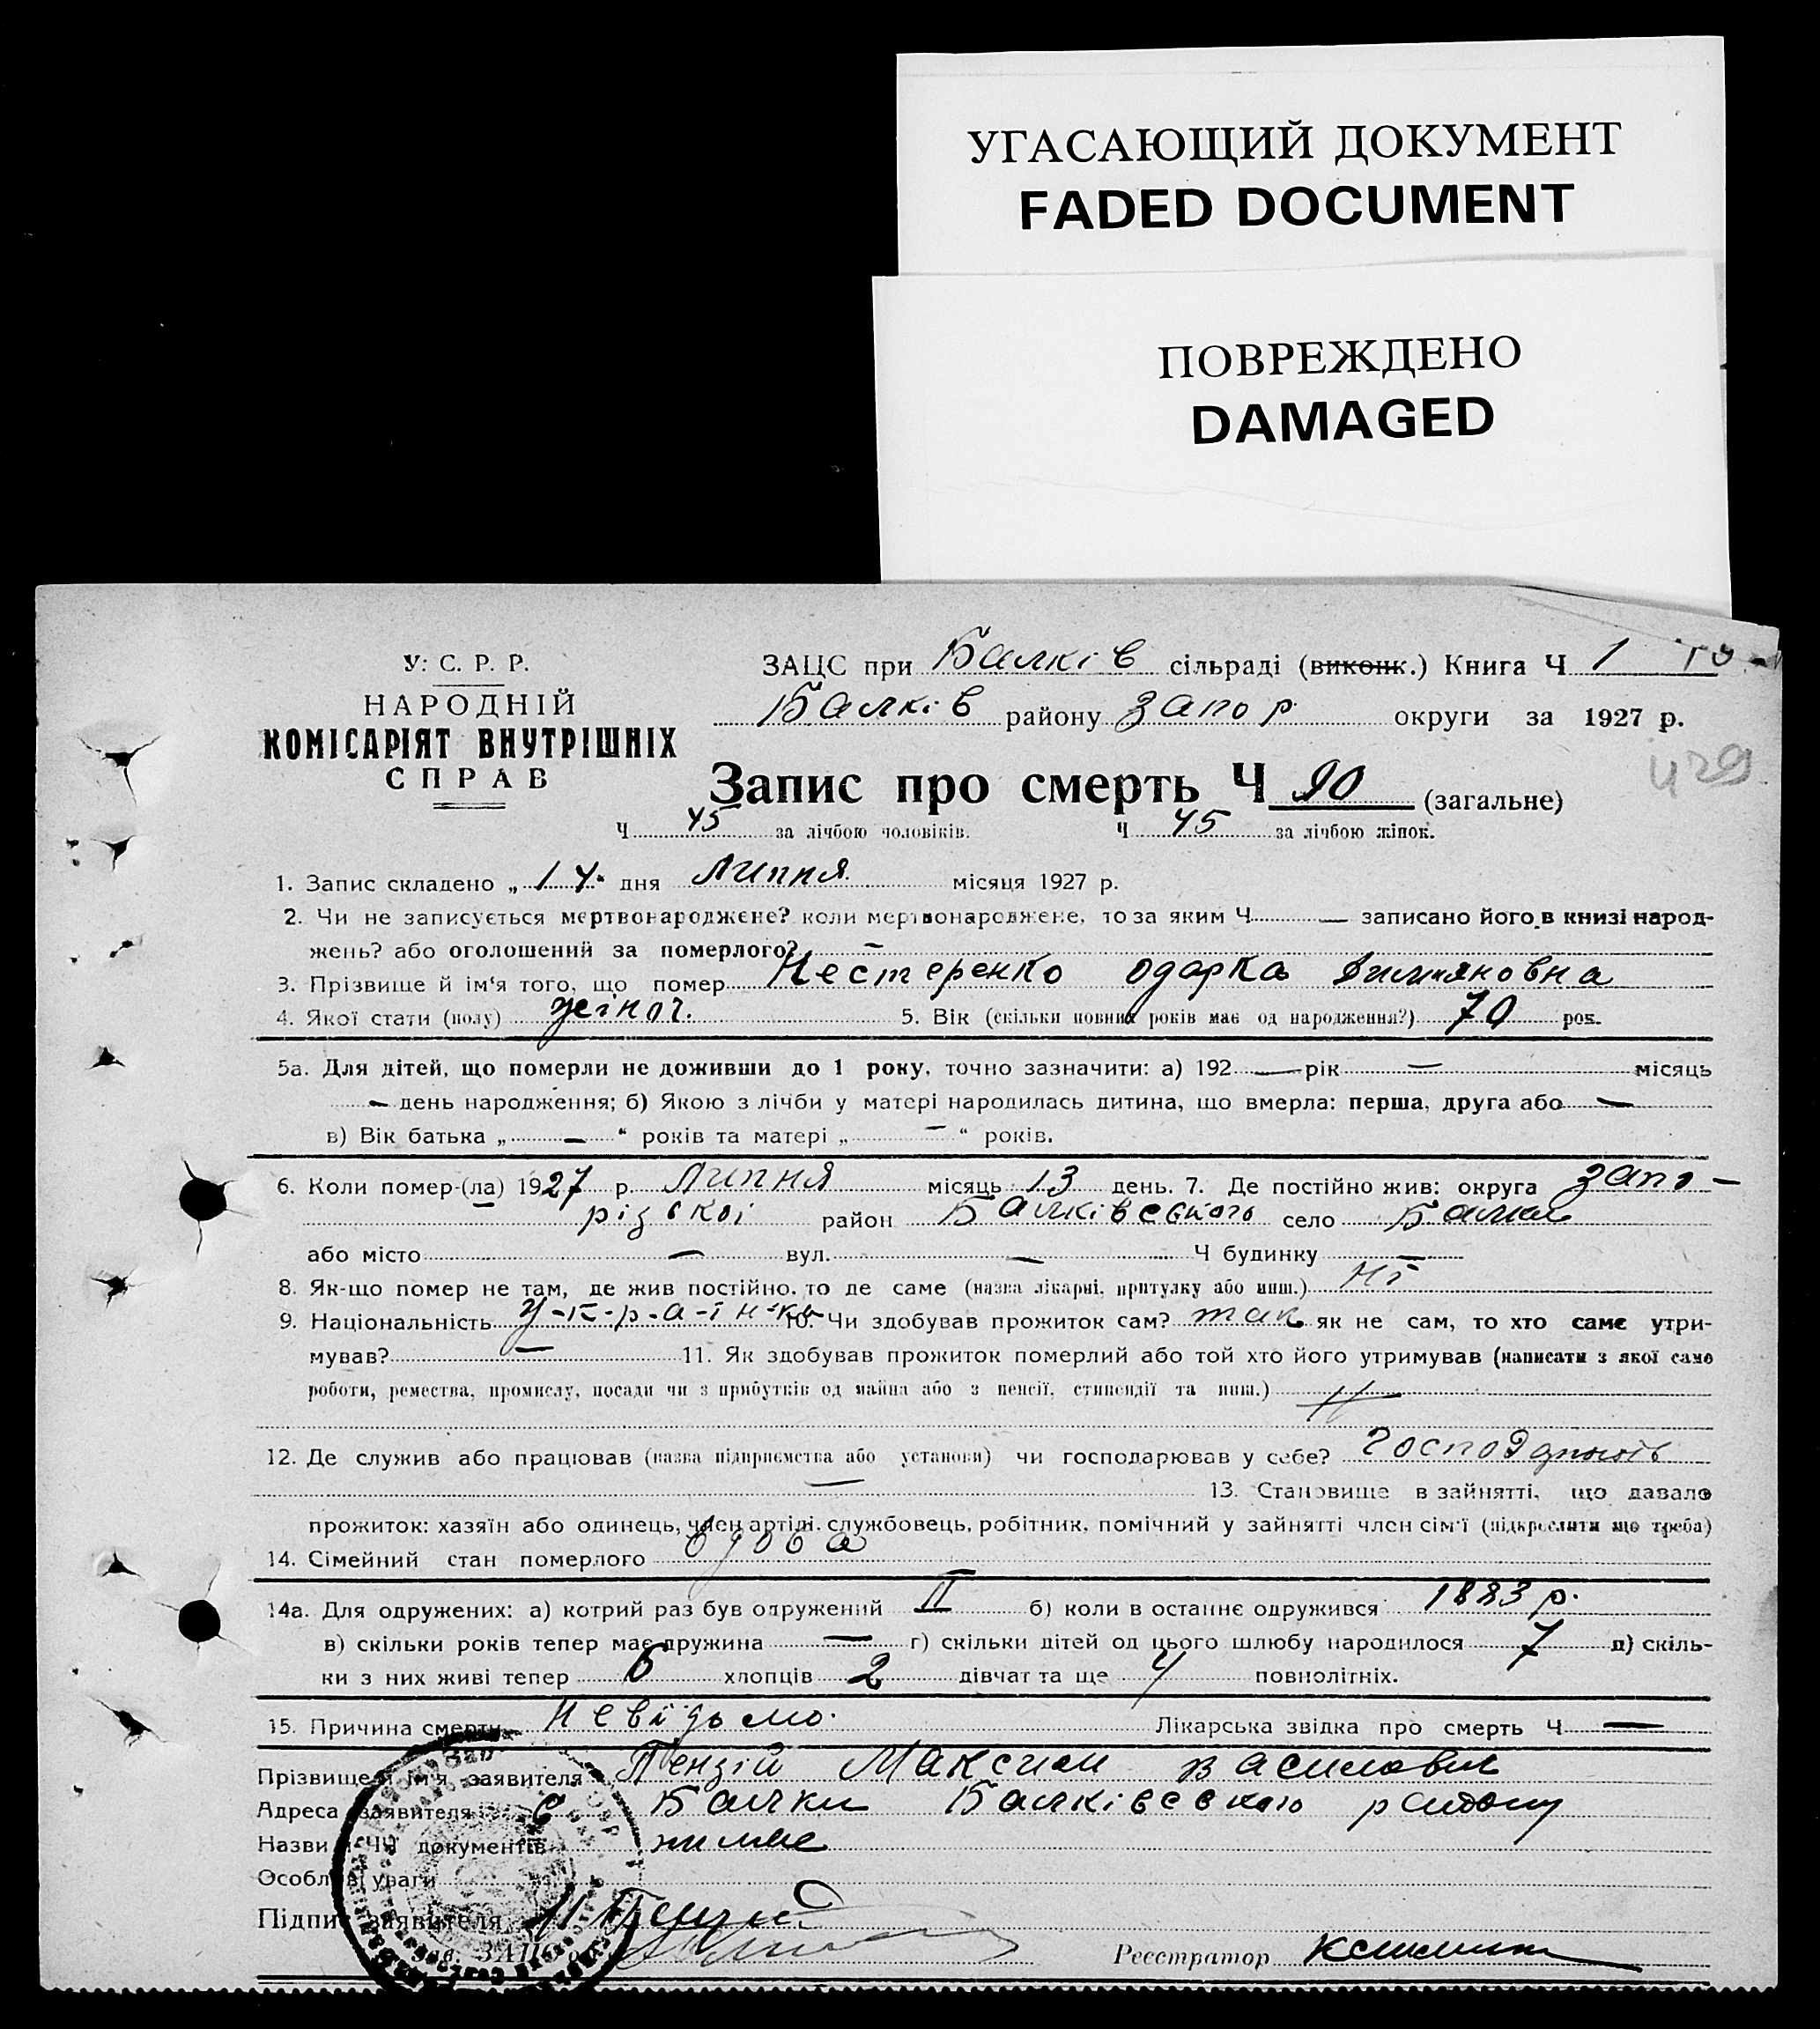 УГАСАЮЩИЙ ДОКУМЕНТ
FADED DOCUMENT
ПОВРЕЖДЕНО
DAMAGED
У. С. Р. Р.
НАРОДНІЙ
КОМІСАРІЯТ ВНУТРІШНІХ
СПРАВ
ЗАЦС при Балків сільраді (виконк.) Книга Ч 1
Балків району Запор округи за 1927 р.
429
Запис про смерть Ч 90 (загальне)
Ч 45 за лічбою чоловіків. Ч 45 за лічбою жінок.
1. Запис складено „ 14 " дня Липня місяця 1927 р.
2. Чи не записується мертвонароджене? коли мертвонароджене, то за яким Ч — записано його в книзі народ-
жень? або оголошений за померлого? —
3. Прізвище й ім'я того, що помер Нестеренко Одарка
4. Якої стати (полу) жіноч. 5. Вік (скільки повних років має од народження?) 70 рок.
5а. Для дітей, що померли не доживши до 1 року, точно зазначити: а) 192 — рік — місяць
— день народження; б) Якою з лічби у матері народилась дитина, що вмерла: перша, друга або —
в) Вік батька „ — " років та матері „ — " років.
6. Коли помер-(ла) 1927 р. Липня місяць 13 день. 7. Де постійно жив: округа Запо-
різької район Балківського село Балки
або місто — вул. — Ч будинку —
8. Як-що помер не там, де жив постійно, то де саме (назва лікарні, притулку або инш.) Ні
9. Національність У-к-р-а-ї-н-ка 10. Чи здобував прожиток сам? так як не сам, то хто саме утри-
мував? — 11. Як здобував прожиток померлий або той хто його утримував (написати з якої саме
роботи, ремества, промислу, посади чи з прибутків од майна або з пенсії, стипендії та инш.)
12. Де служив або працював (назва підприємства або установи) чи господарював у себе?
— 13. Становище в зайнятті, що давало
прожиток: хазяїн або одинець, член артілі, службовець, робітник, помічний у зайнятті член сім'ї (підкреслити що треба)
14. Сімейний стан померлого вдова
14а. Для одружених: а) котрий раз був одружений II б) коли в останнє одружився 1883 р.
в) скільки років тепер має дружина — г) скільки дітей од цього шлюбу народилося 7 д) скіль-
ки з них живі тепер 6 хлопців 2 дівчат та ще 4 повнолітніх.
15. Причина смерти Невідомо. Лікарська звідка про смерть Ч —
Прізвище й ім'я заявителя Пензій Максим Василович
Адреса заявителя с Балки Балківського району
Назви й ЧЧ документів нимає
Особливі уваги
Підпис заявителя М Пензий
Зав. ЗАЦС'ом
Реєстратор